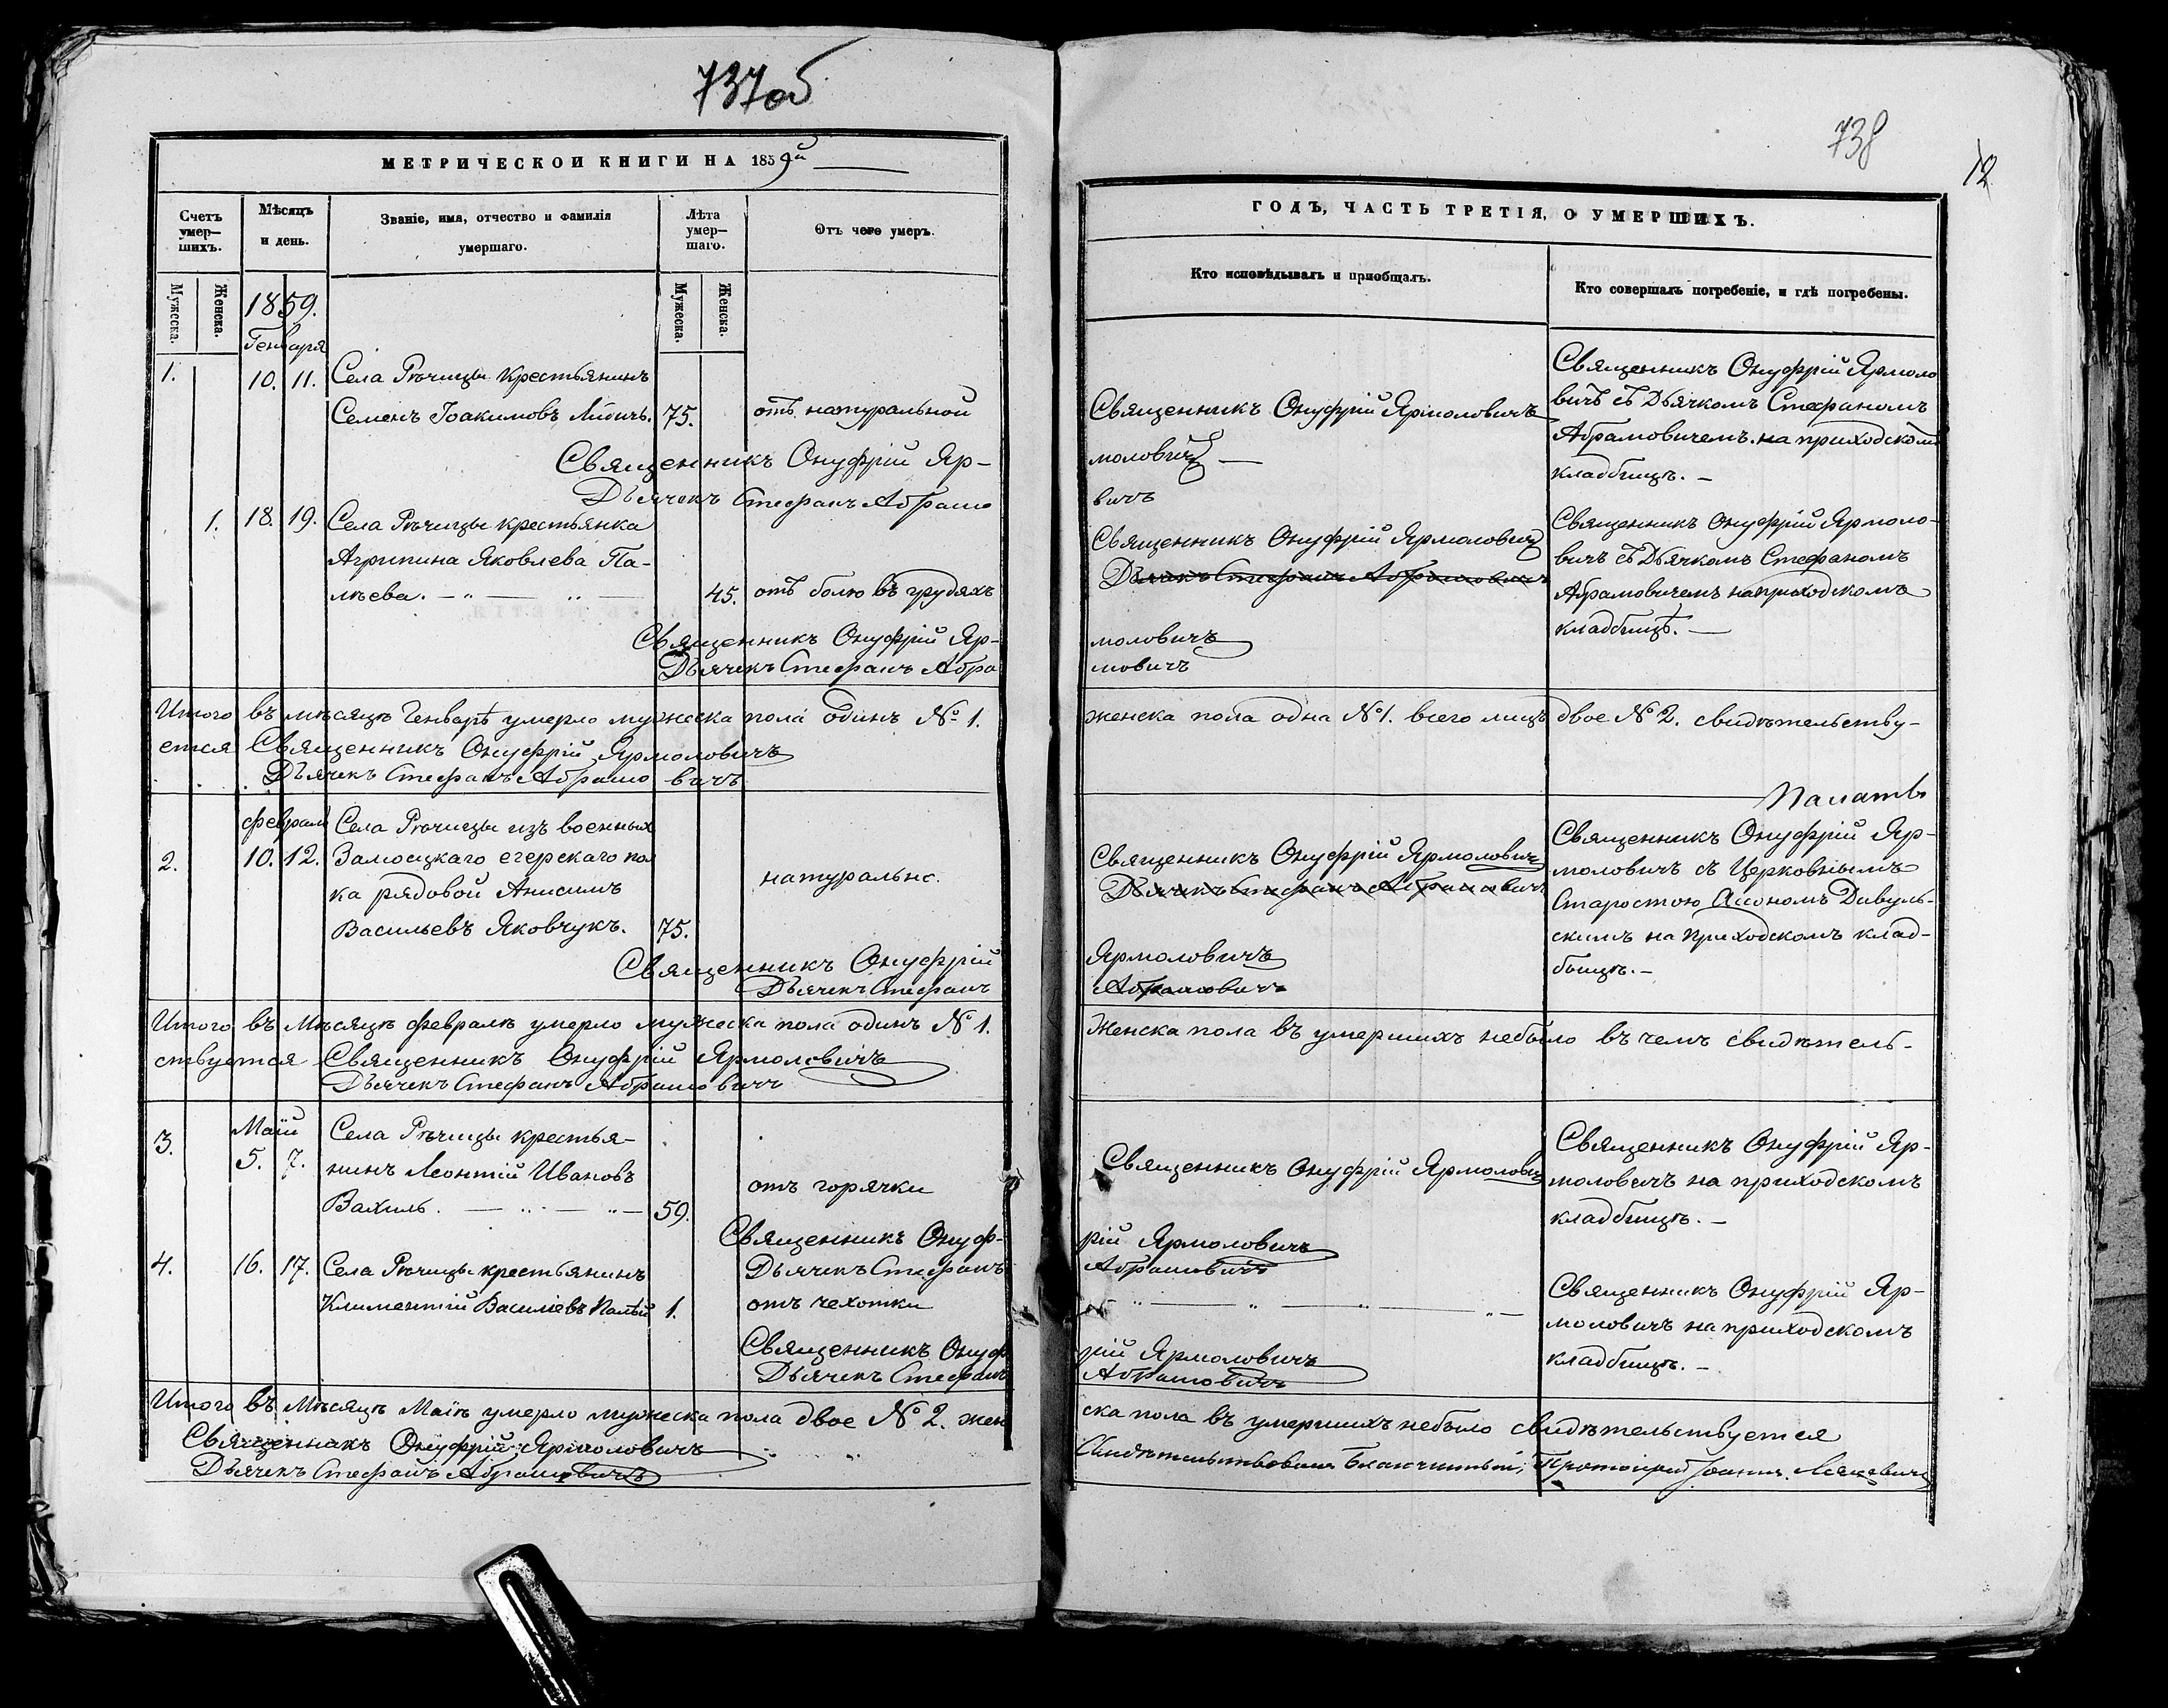 737об
МЕТРИЧЕСКОЙ КНИГИ НА 1859й
Счетъ умер-шихъ.
Мѣсяцъ и день.
Званіе, имя, отчество и фамилія умершаго.
Лѣта умер-шаго.
Отъ чего умеръ.
Мужеска.
Женска.
Мужеска.
Женска.
1859.
Генваря
1. 10. 11. Села Рѣчицы крестьянинъ
Семенъ Іоакимовъ 75. отъ натуральной
Священникъ Онуфрій Яр-
Дьячекъ Стефанъ Абрамо
1. 18. 19. Села Рѣчицы крестьянка
Агрипина Яковлева Па-
лѣева. 45. отъ болю въ грудяхъ
Священникъ Онуфрій Яр-
Дьячекъ Стефанъ Абра
Итого въ мѣсяцѣ Генварѣ умерло мужеска пола одинъ № 1.
ется Священникъ Онуфрій Ярмоловичъ
Дьячекъ Стефанъ Абрамовичъ
февраля Села Рѣчицы изъ военныхъ
2. 10. 12. Замосцкаго егерскаго пол
ка рядовой Анисимъ натурально.
Васильевъ Яковчукъ. 75.
Священникъ Онуфрій
Дьячекъ Стефанъ
Итого въ Мѣсяцѣ февралѣ умерло мужеска пола одинъ № 1.
ствуется Священникъ Онуфрій Ярмоловичъ
Дьячекъ Стефанъ Абрамовичъ
Маій
3. 5. 7. Села Рѣчицы крестья-
нинъ Леонтій Ивановъ отъ горячки
Вахиль. 59.
Священникъ Онуф-
4. 16. 17. Села Рѣчицы крестьянинъ Дьячекъ Стефанъ
Климентій Василіевъ Палѣй 1. отъ чехотки
Священникъ Онуф
Дьячекъ Стефанъ
Итого въ Мѣсяцѣ Маіѣ умерло мужеска пола двое № 2. жен
Священникъ Онуфрій Ярмоловичъ
Дьячекъ Стефанъ Абрамовичъ
738
12
ГОДЪ, ЧАСТЬ ТРЕТІЯ, О УМЕРШИХЪ.
Кто исповѣдывалъ и пріобщалъ.
Кто совершалъ погребеніе, и гдѣ погребены.
Священникъ Онуфрій Ярмоловичъ
моловичъ
вичъ
Священникъ Онуфрій Ярмоло
вичъ съ Дьячкомъ Стефаномъ
Абрамовичемъ на приходскомъ
кладбищѣ.
Священникъ Онуфрій Ярмоловичъ
Дьячекъ Стефанъ Абрамовичъ
моловичъ
мовичъ
Священникъ Онуфрій Ярмоло-
вичъ съ Дьячкомъ Стефаномъ
Абрамовичемъ на приходскомъ
кладбищѣ.
женска пола одна №1. всего лицъ двое № 2. свидѣтельству-
Священникъ Онуфрій Ярмоловичъ
Дьячекъ Стефанъ Абрамовичъ
Ярмоловичъ
Абрамовичъ
Священникъ Онуфрій Яр-
моловичъ съ Церковнымъ
Старостою
скимъ на приходскомъ клад-
бищѣ.
Женска пола въ умершихъ небыло въ чемъ свидѣтель-
Священникъ Онуфрій Ярмолович
рій Ярмоловичъ
Абрамовичъ
Священникъ Онуфрій Яр-
моловичъ на приходскомъ
кладбищѣ.
рій Ярмоловичъ
Абрамовичъ
Священникъ Онуфрій Яр-
моловичъ на приходскомъ
кладбищѣ.
ска пола въ умершихъ небыло свидѣтельствуется
Протоіерей Іоаннъ